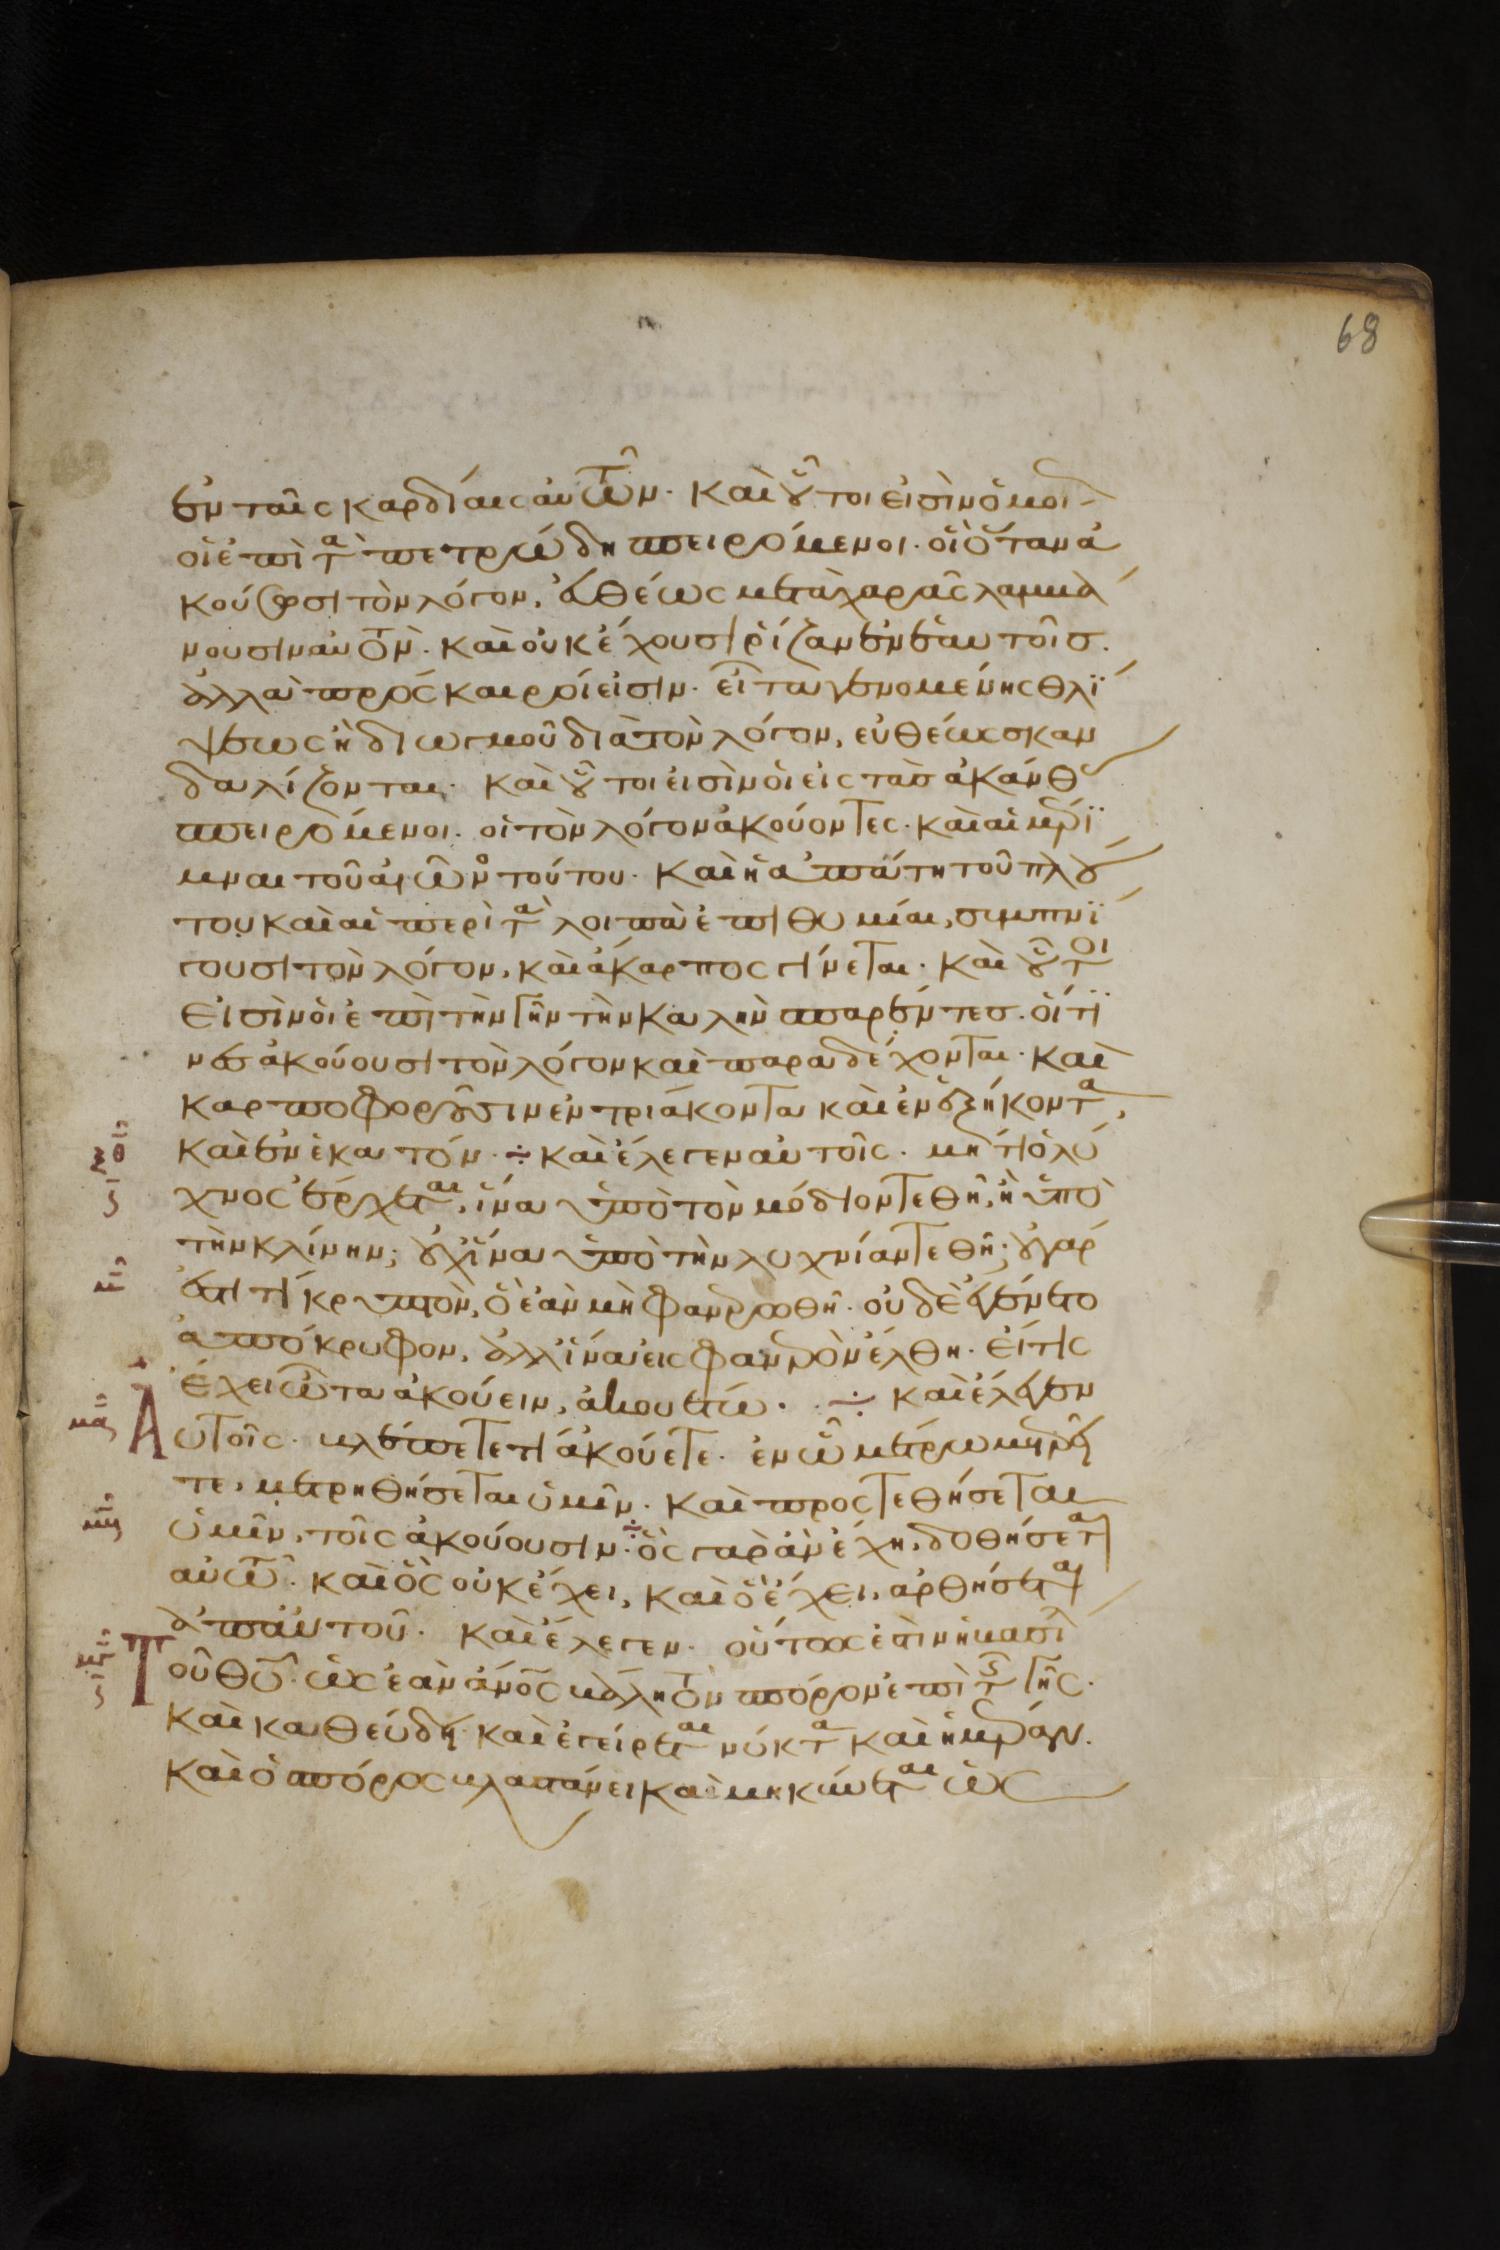 68
ἐν ταῖς καρδίαις αὐτῶν. καὶ οὗτοι εἰσὶν ὁμοί
οἱ ἐπὶ τὰ πετρώδη σπειρόμενοι. οἳ ὅταν ἀ
κούσωσι τὸν λόγον, εὐθέως μετὰ χαρᾶς λαμβά
νουσιν αὐτὸν. καὶ οὐκ ἔχουσι ῥίζαν ἐν ἑαυτοῖς.
ἀλλὰ πρόσκαιροί εἰσιν. εἶτα γενομένης θλί
ψεως ἢ διωγμοῦ διὰ τὸν λόγον, εὐθέως σκαν
δαλίζονται. καὶ οὗτοι εἰσὶν οἱ εἰς τὰς ἀκάνθ
σπειρόμενοι. οἱ τὸν λόγον ἀκούοντες. καὶ αἱ μέρι
μναι τοῦ αἰῶνος τούτου. καὶ ἡ ἀπάτη τοῦ πλού
του καὶ αἱ περὶ τὰ λοιπὰ ἐπιθυμίαι, συμπνί
γουσι τὸν λόγον, καὶ ἄκαρπος γίνεται. καὶ οὗτοι
εἰσὶν οἱ ἐπὶ τὴν γῆν τὴν καλὴν σπαρέντες. οἵτι
νες ἀκούουσι τὸν λόγον καὶ παραδέχονται. καὶ
καρποφοροῦσιν ἐν τριάκοντα καὶ ἐν ἑξήκοντα,
καὶ ἐν ἑκατόν. ÷ καὶ ἔλεγεν αὐτοῖς. μήτι ὁ λύ
χνος ἔρχεται, ἵνα ὑπὸ τὸν μόδιον τεθῆ, ἢ ὑπὸ
τὴν κλίνην; οὐχ ἵνα ὑπὸ τὴν λυχνίαν τεθῆ; οὐ γάρ
ἐστί τι κρυπτὸν, ὃ ἐὰν μὴ φανερωθῆ. οὐδὲ ἐγένετο
ἀπόκρυφον, ἀλλ' ἵνα εἰς φανερὸν ἔλθη. εἴ τις
ἔχει ὦτα ἀκούειν, ἀκουέτω. ÷ καὶ ἔλεγεν
Αὐτοῖς. βλέπετε τί ἀκούετε. ἐν ὧ μέτρω μετρεῖ
τε, μετρηθήσεται ὑμῖν. καὶ προστεθήσεται
ὑμῖν, τοῖς ἀκούουσιν. ÷ ὃς γὰρ ἂν ἔχη, δοθήσεται
αὐτῶ. καὶ ὃς οὐκ ἔχει, καὶ ὃ ἔχει, ἀρθήσεται
ἀπ' αὐτοῦ. καὶ ἔλεγεν. οὕτως ἐστὶν ἡ βασι
Τοῦ θυ. ὡς ἐὰν ἀνος βάλη τὸν σπόρον ἐπὶ τῆς γῆς.
καὶ καθεύδη καὶ ἐγείρεται νύκτα καὶ ἡμέραν.
καὶ ὁ σπόρος βλαστάνει καὶ μηκύνεται ὡς